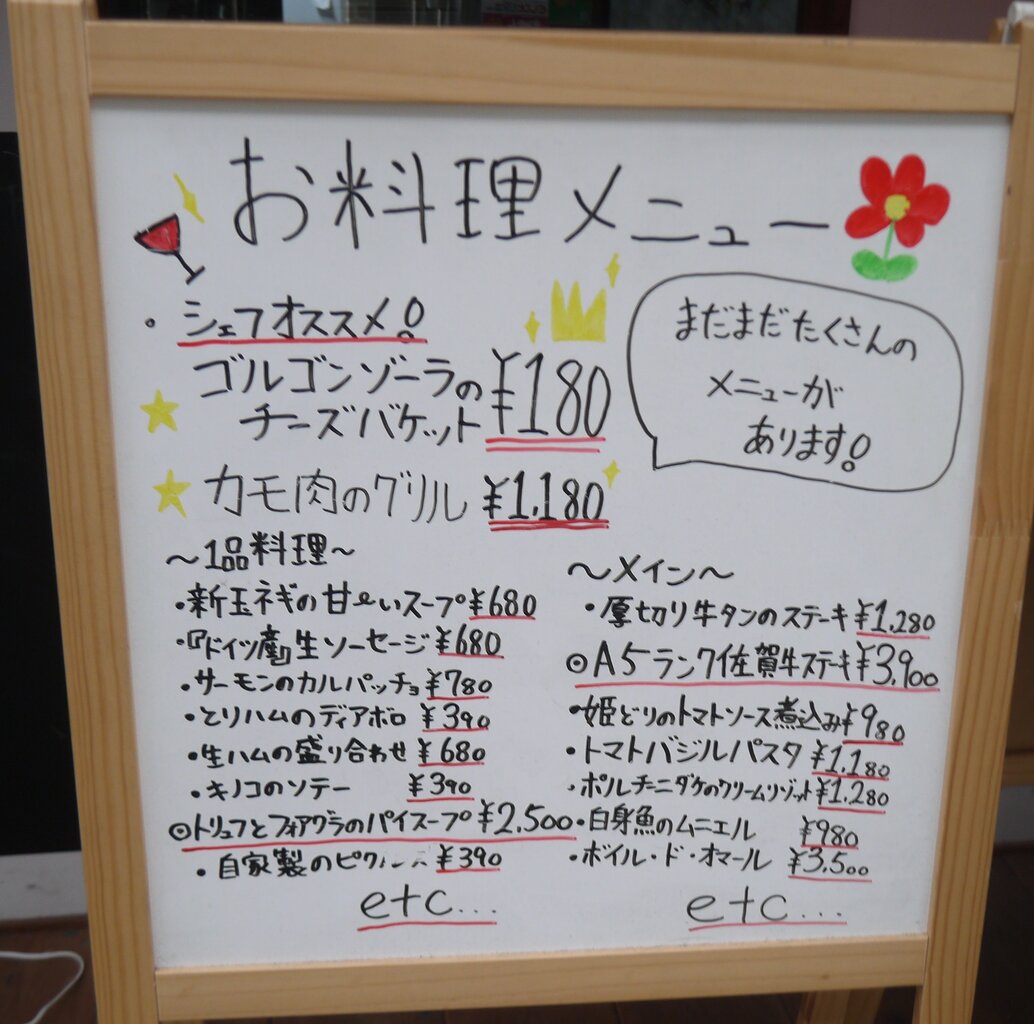 お料理メニュー
・シェフオススメ!
ゴルゴンゾーラの
チーズバケット ¥180
カモ肉のグリル ¥1,180
まだまだたくさんの
メニューが
あります!
〜1品料理〜
・新玉ネギの甘〜いスープ ¥680
・『ドイツ産』生ソーセージ ¥680
・サーモンのカルパッチョ ¥780
・とりハムのディアボロ ¥390
・生ハムの盛り合わせ ¥680
・キノコのソテー ¥390
◎トリュフとフォアグラのパイスープ ¥2,500
・自家製のピクルス ¥390
etc...
〜メイン〜
・厚切り牛タンのステーキ ¥1,280
◎A5ランク佐賀牛ステキ ¥3,900
・姫どりのトマトソース煮込み ¥980
・トマトバジルパスタ ¥1,180
・ポルチーニダケのクリームリゾット ¥1,280
・白身魚のムニエル ¥980
・ボイル・ド・オマール ¥3,500
etc...